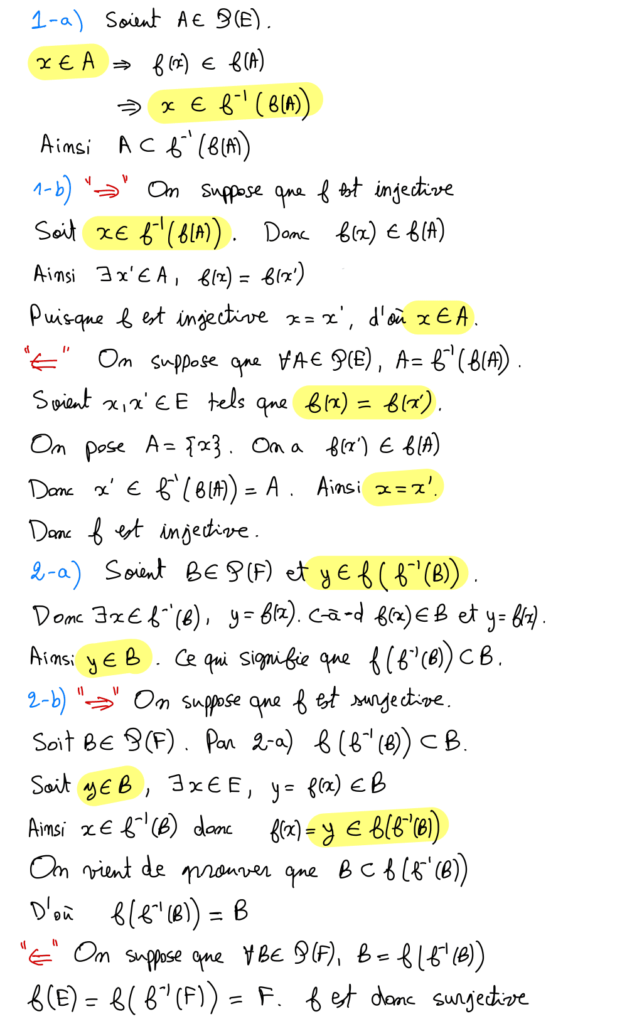 1-a) Soient A ∈ 𝒫(E).
x ∈ A ⇒ f(x) ∈ f(A)
⇒ x ∈ f⁻¹(f(A))
Ainsi A ⊂ f⁻¹(f(A))
1-b) "⇒" On suppose que f est injective
Soit x ∈ f⁻¹(f(A)). Donc f(x) ∈ f(A)
Ainsi ∃x' ∈ A, f(x) = f(x')
Puisque f est injective x = x', d'où x ∈ A.
"⇐" On suppose que ∀A ∈ 𝒫(E), A = f⁻¹(f(A)).
Soient x, x' ∈ E tels que f(x) = f(x').
On pose A = {x}. On a f(x') ∈ f(A)
Donc x' ∈ f⁻¹(f(A)) = A. Ainsi x = x'.
Donc f est injective.
2-a) Soient B ∈ 𝒫(F) et y ∈ f(f⁻¹(B)).
Donc ∃x ∈ f⁻¹(B), y = f(x). c-à-d f(x) ∈ B et y = f(x).
Ainsi y ∈ B. Ce qui signifie que f(f⁻¹(B)) ⊂ B.
2-b) "⇒" On suppose que f est surjective.
Soit B ∈ 𝒫(F). Par 2-a) f(f⁻¹(B)) ⊂ B.
Soit y ∈ B, ∃x ∈ E, y = f(x) ∈ B
Ainsi x ∈ f⁻¹(B) donc f(x) = y ∈ f(f⁻¹(B))
On vient de prouver que B ⊂ f(f⁻¹(B))
D'où f(f⁻¹(B)) = B
"⇐" On suppose que ∀B ∈ 𝒫(F), B = f(f⁻¹(B))
f(E) = f(f⁻¹(F)) = F. f est donc surjective